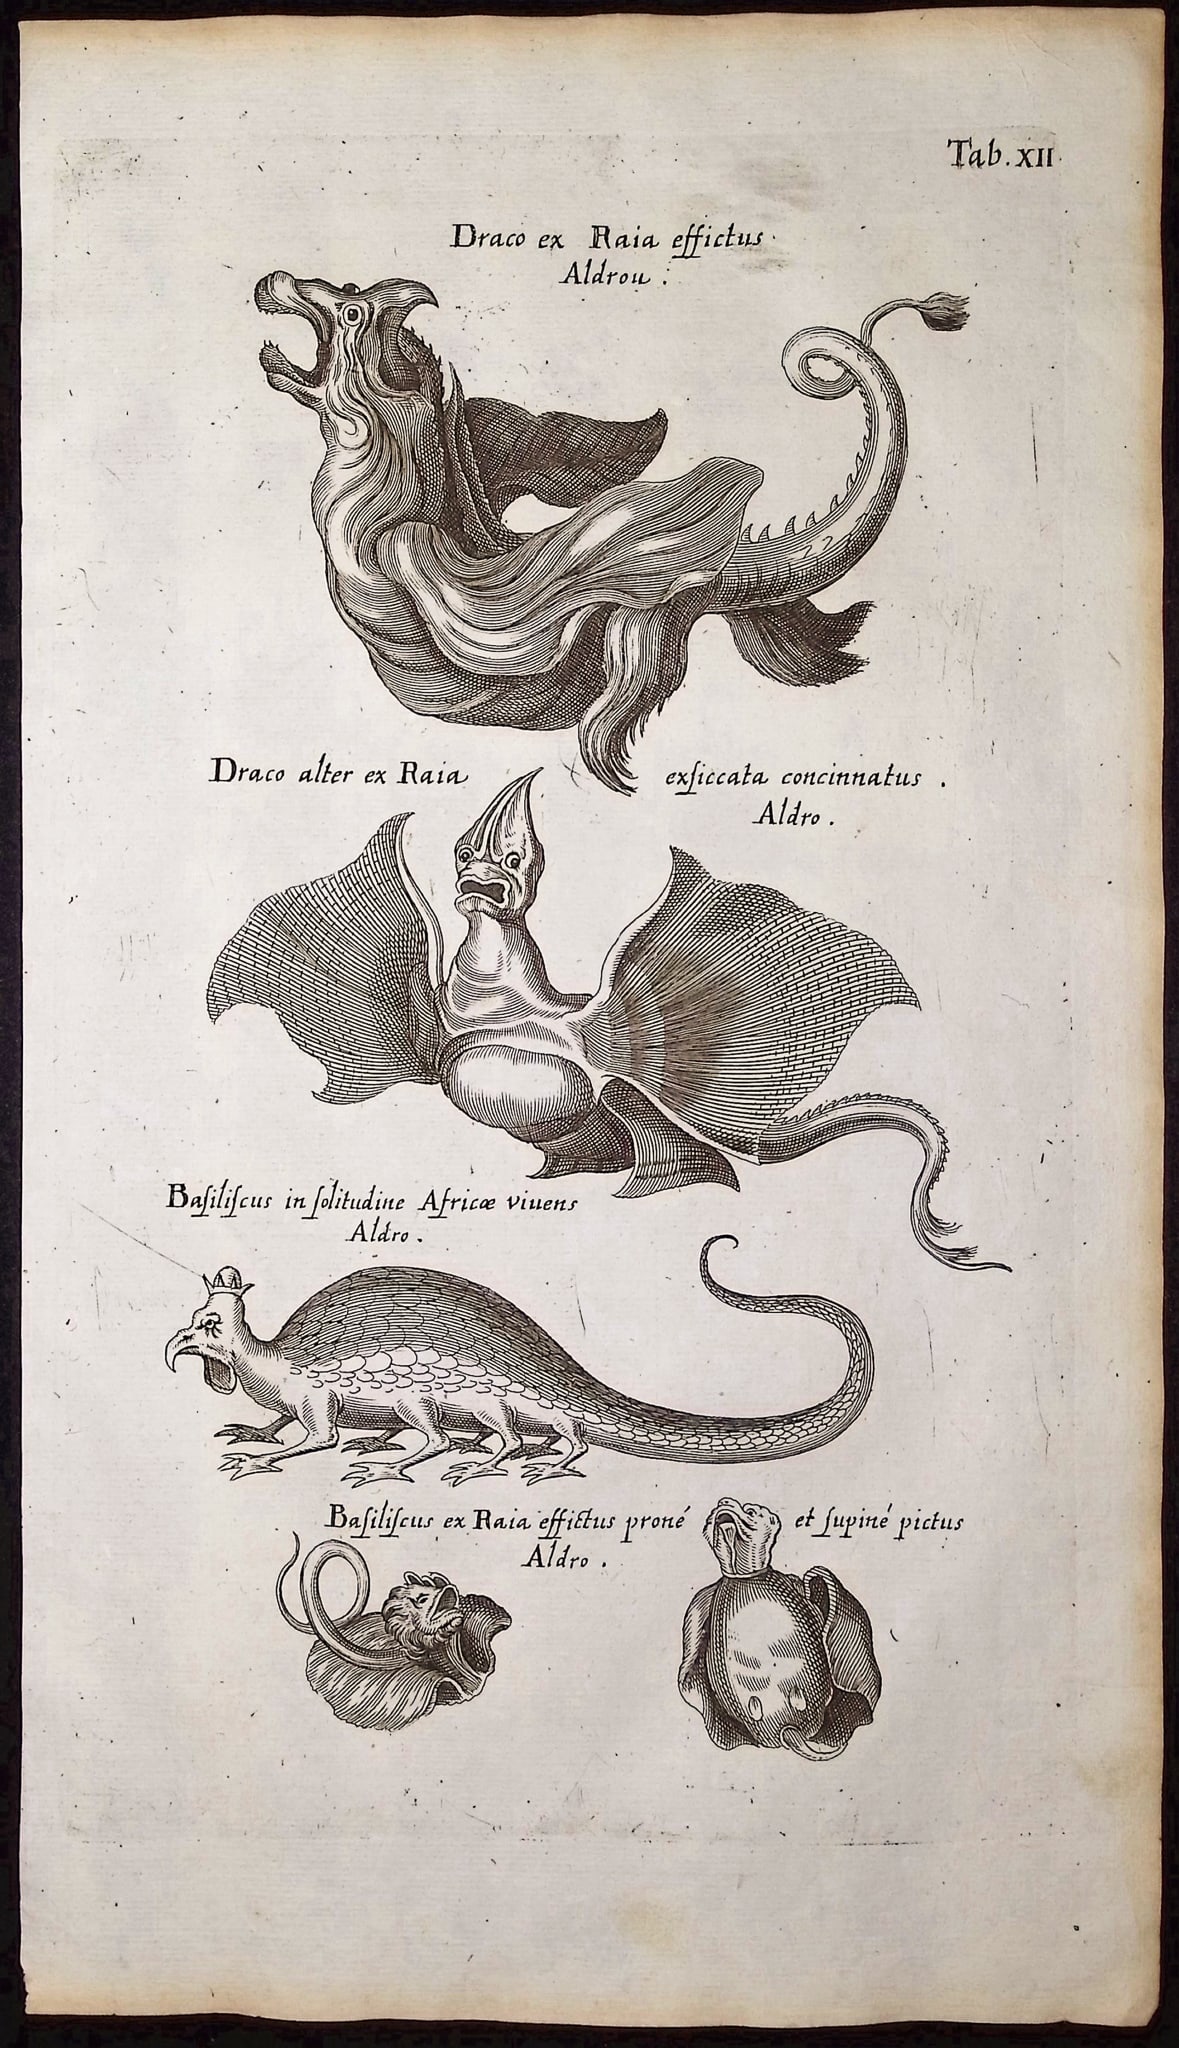 Tab. XII.
Draco ex Raia effictus.
Aldrou.
Draco alter ex Raia exſiccata concinnatus.
Aldro.
Baſiliſcus in ſolitudine Africæ viuens
Aldro.
Baſiliſcus ex Raia effictus proné et ſupiné pictus
Aldro.